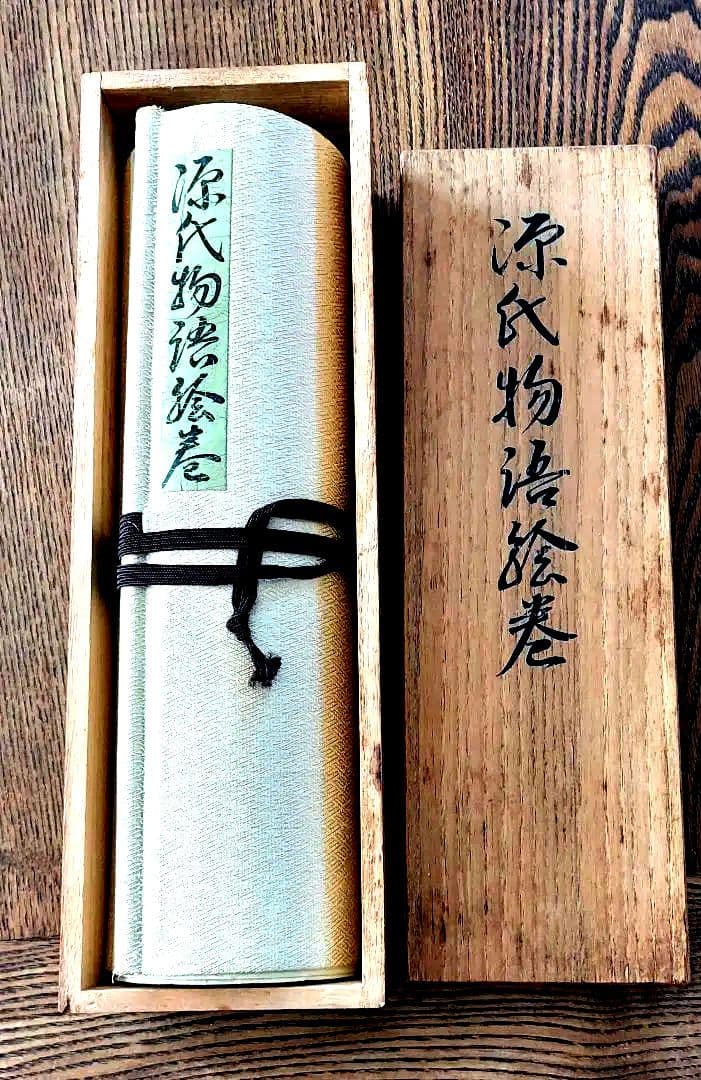 源氏物語絵巻
源氏物語絵巻